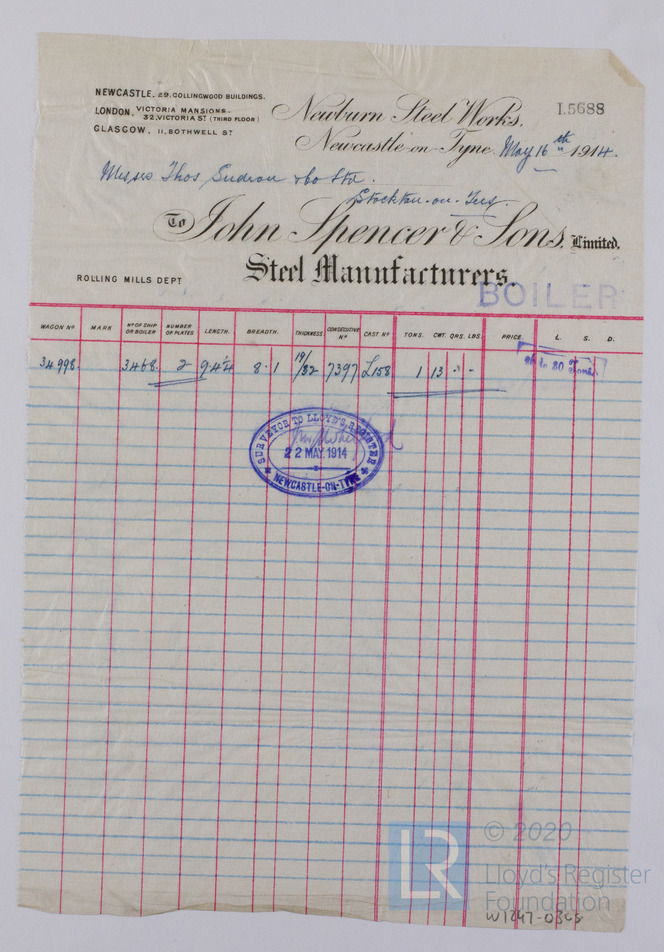 NEWCASTLE. 29. COLLINGWOOD BUILDINGS.
LONDON. VICTORIA MANSIONS.
32, VICTORIA ST (THIRD FLOOR)
GLASGOW. 11, BOTHWELL ST
I.5688
Newburn Steel Works,
Newcastle-on-Tyne, May 16th 1914.
Messrs Thos Sudron & Co Ltd.
Stockton-on-Tees.
To John Spencer & Sons, Limited.
Steel Manufacturers.
ROLLING MILLS DEPT
BOILER
WAGON No MARK No OF SHIP OR BOILER NUMBER OF PLATES LENGTH. BREADTH. THICKNESS CONSECUTIVE No CAST No TONS. CWT. QRS. LBS. PRICE. L. S. D.
26 to 30 Tons.
34998. 3468. 2 9.4¼ 8.1 19/32 7397 L158 1 13 - -
SURVEYOR TO LLOYD'S REGISTER
22 MAY 1914
NEWCASTLE-ON-TYNE
LR
© 2020
Lloyd's Register
Foundation